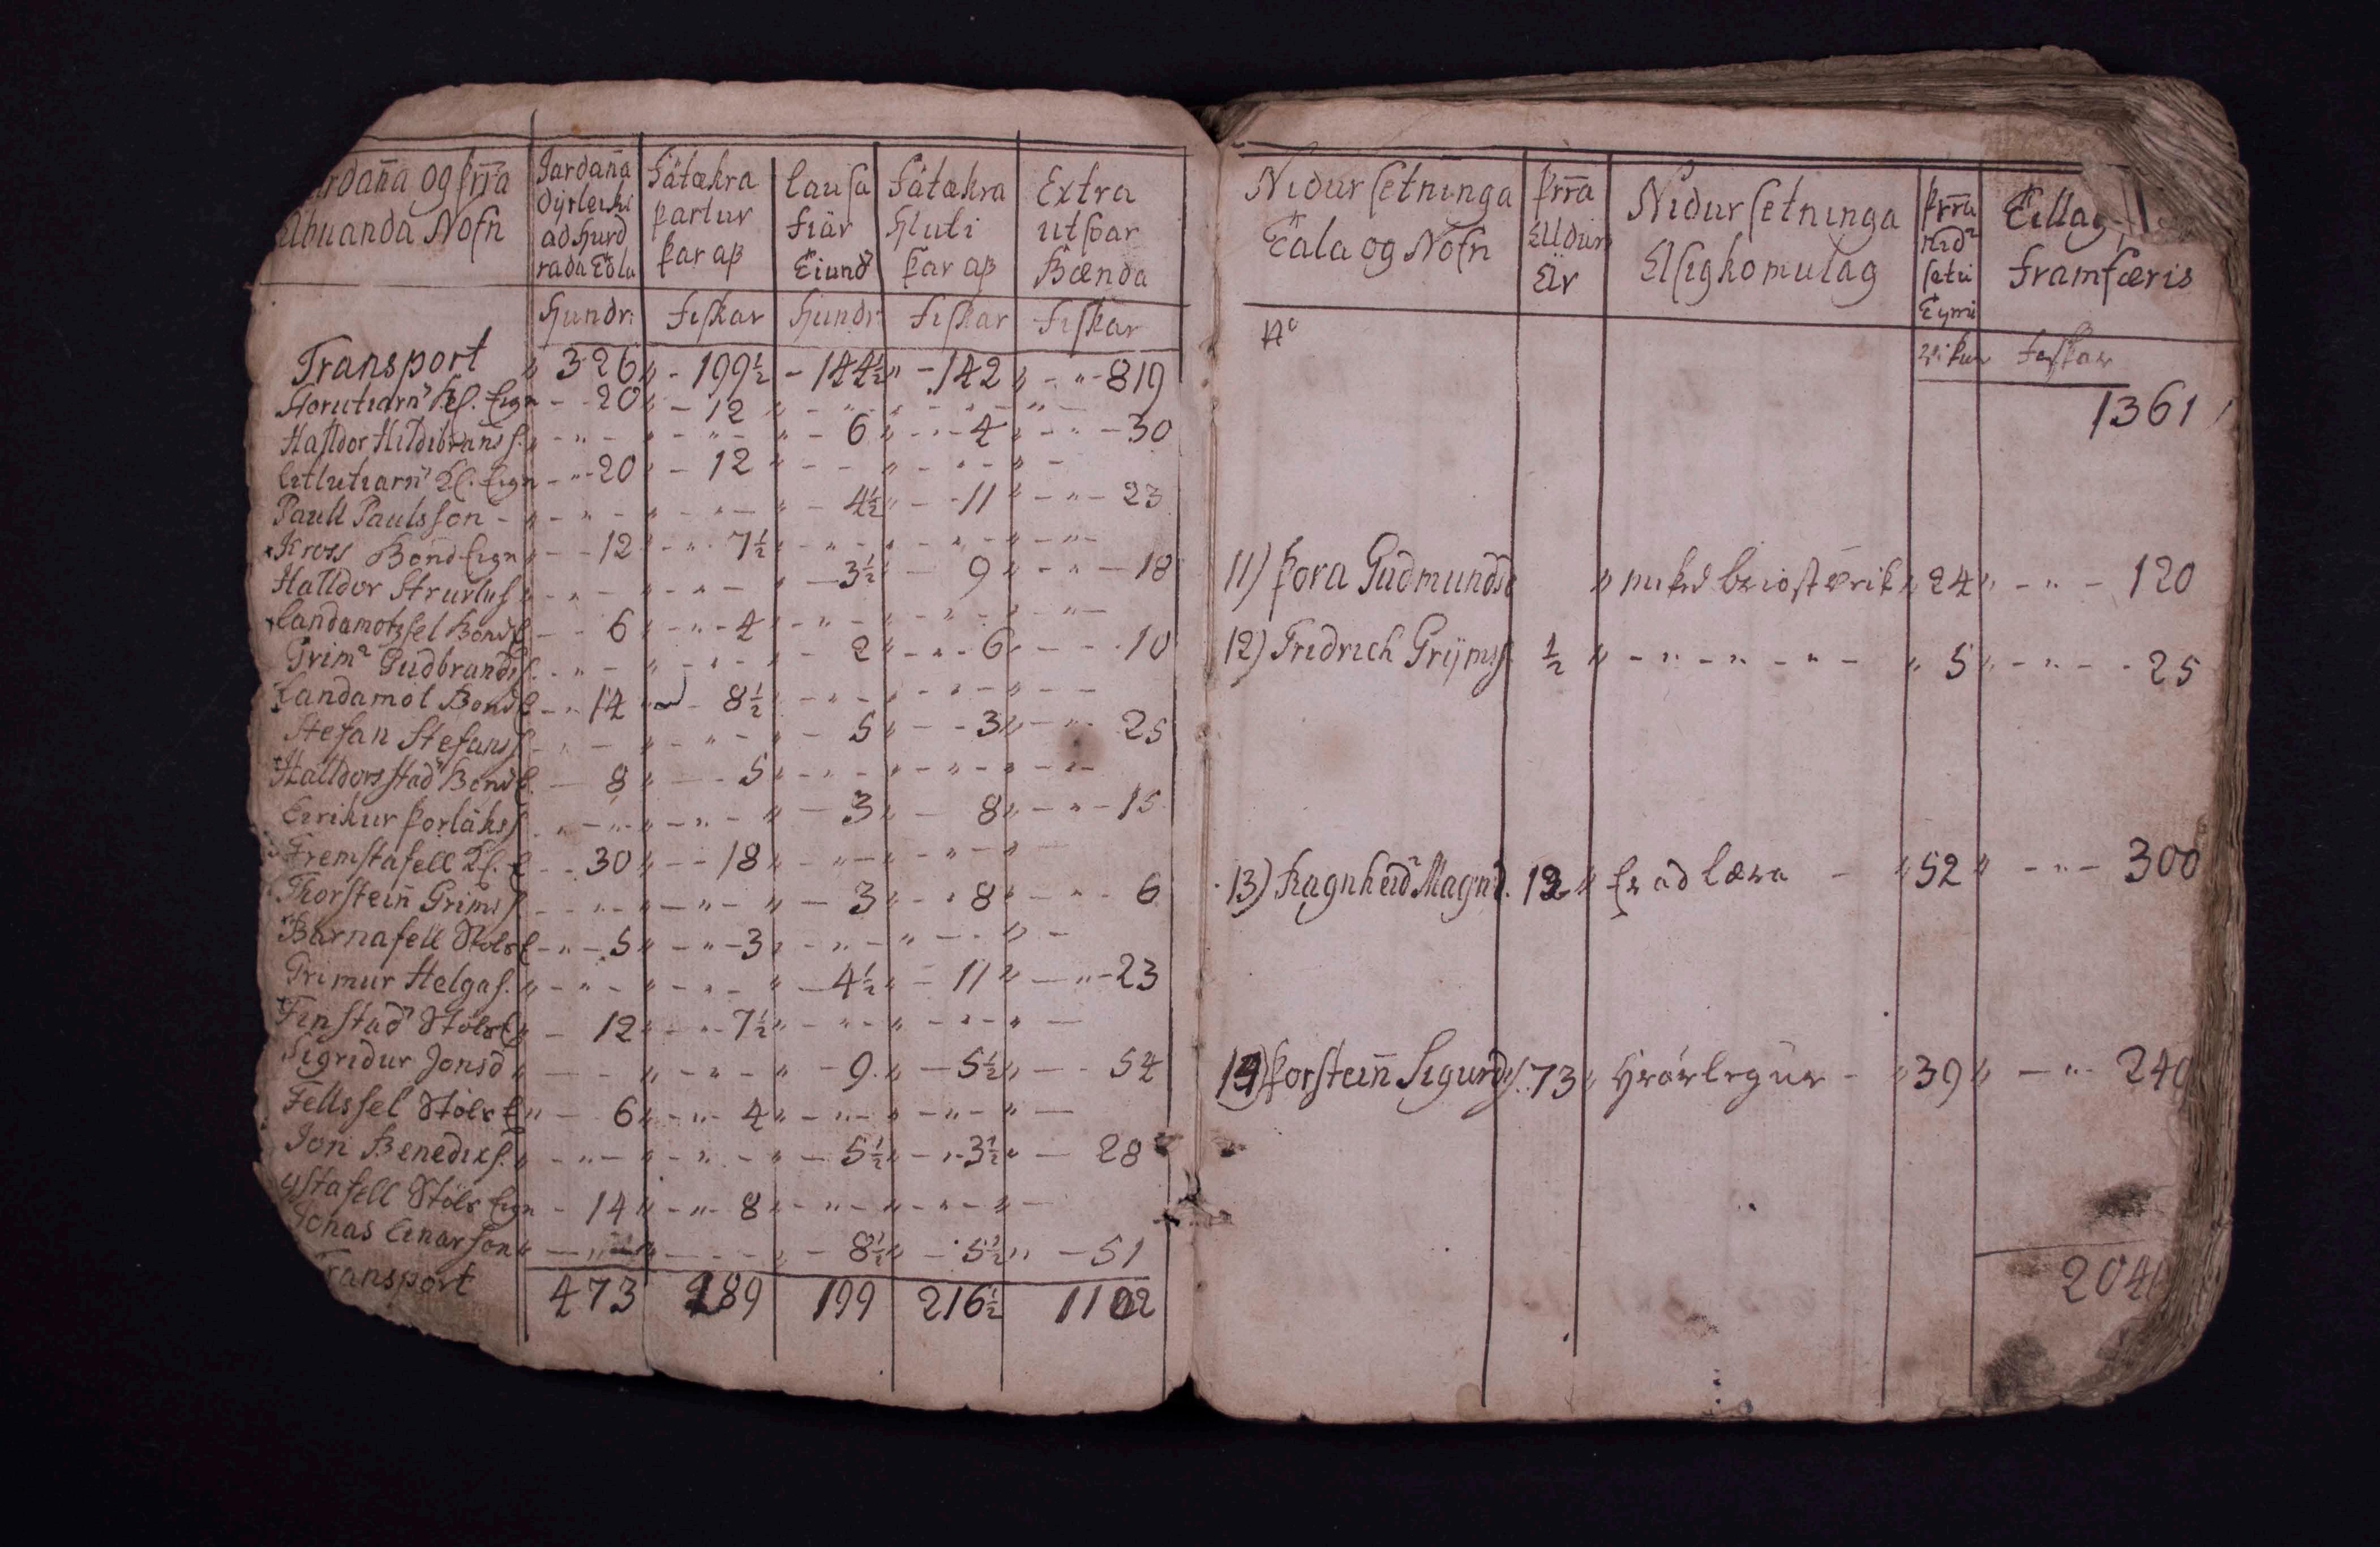 rdan̄a og þr̄ra
Ábuanda Nöfn
Jardan̄a dÿrleiki ad hund rada Tölu
Fátækra partur þar aß
Lausa fiár Tiund
Fátækra Hluti þar aß
Extra utsvar Bænda
Hundr: Fiskar Hundr: Fiskar Fiskar
Transport „ 326 „ - 199½ - 144½ „ - 142 „ - „ - 819
Eign - - 20 „ - 12 „ - „ - „ - „ -
Halldor Hildibrans s. „ - „ - „ - „ - „ - 6 „ - - 4 „ - „ - 30
Eign - „ - 20 „ - 12 „ - - „ - „ - „ -
Paull Paulsson - „ - „ - „ - „ - „ - 4½ „ - - 11 „ - „ - 23
Kross Bond Eign „ - - 12 „ - „ - 7½ „ - „ - „ - „ - „ -
Halldor Sturlus „ - „ - „ - „ - „ - 3½ „ - 9 „ - „ - 18
Landamotssel Bond E - - 6 „ - „ - 4 „ - „ - „ - „ - „ -
Grimr Gudbrands s. - „ - „ - „ - „ - 2 „ - „ - 6 „ - - - 10
Landamot Bond E - „ - 14 „ - 8½ „ - „ - „ - „ - „ - -
Stefan Stefans s - „ - „ - „ - „ - 5 „ - - 3 „ - „ - 25
Halldorsstad Bond E. - 8 „ - - 5 „ - „ - „ - „ - „ - „ -
Eirikur Þorláks s „ - „ - „ - „ - „ - 3 „ - 8 „ - „ - 15
Fremstafell Kl. E - - 30 „ - - 18 „ - „ - „ - „ - „ -
Thorstein̄ Grims s - „ - „ - „ - „ - 3 „ - „ 8 „ - „ - 6
Barnafell Stols E - „ - 5 „ - „ - 3 „ - „ - „ - - „ -
Grimur Helgas. „ - „ - „ - „ - „ - 4½ „ - 11 „ - „ - 23
Finstad Stols E „ - 12 „ - „ 7½ „ - „ - „ - „ - „ -
Sigridur Jonsd „ - - „ - „ - „ - 9 „ - 5½ „ - - 54
Fellssel Stols E „ - 6 „ - „ - 4 „ - „ - „ - „ - „ -
Jon Benedixs. „ - „ - „ - „ - „ - 5½ „ - „ - 3½ „ - 28
ystafell Stöls Eign - 14 „ - „ - 8 „ - „ - „ - „ - „ -
Jonas Einarson „ - „ - „ - - - „ - 8½ „ - 5½ „ - 51
ransport 473 289 199 216½ 1102
Nidursetninga Tala og Nöfn
Þr̄ra Alldurs Ár
Nidursetninga Ásigkomulag
Þr̄ra nidr setu Tými
Tillag
Framfæris
No
Vikur Fiskar
1361
11) Þora Gudmundsd „ 24 „ - „ - 120
12) Fridrich Grÿms s. ½ „ - „ - „ - „ - „ 5 „ - „ - - 25
13) Ragnheidr Magnd. 12 „ Er ad læra - „ 52 „ - „ - 300
14) Þorstein̄ Sigurds s. 73 „ Hrörlegur - „ 39 „ - „ - 240
204